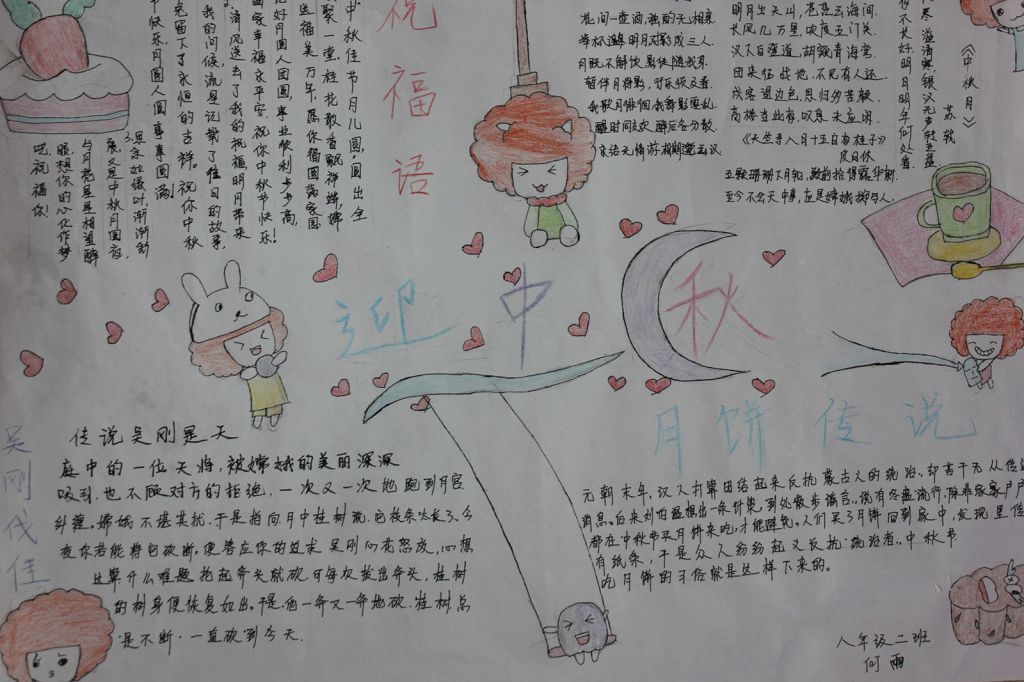 祝福语
中秋佳节月儿圆,圆出全
聚一堂,桂花散香飘
祝你中秋节快乐!
清风送去了我的祝福,明月带来
我的问候,流星记载了佳日的故事,
留下了永恒的吉祥。祝你中秋
快乐,月圆人圆事事圆满!
又是中秋月圆夜,
与月亮星星相望醉
眼,想你的心化作梦
呓,祝福你!
花间一壶酒,独酌无相亲
举杯邀明月,对影成三人
月既不解饮,影徒随我身
暂伴月将影,行乐须及春
我歌月徘徊,我舞影零乱
醒时同交欢,醉后各分散
永结无情游,相期邈云汉
明月出天山,苍茫云海间
长风几万里,吹度玉门关
汉下白登道,胡窥青海湾
由来征战地,不见有人还
戍客望边色,思归多苦颜
高楼当此夜,叹息未应闲
《天竺寺八月十五日夜桂子》
皮日休
玉颗珊珊下月轮,殿前拾得露华新
至今不会天中事,应是嫦娥掷与人
《中秋月》
苏轼
溢清寒,银汉无声转玉盘
不长好,明月明年何处看
迎中秋
吴刚伐佳
传说吴刚是天
庭中的一位天将,被嫦娥的美丽深深
吸引,也不顾对方的拒绝,一次又一次地跑到月宫
纠缠。嫦娥不堪其扰,于是指向月中桂树说:它枝条太长了,今
夜你若能将它砍断,便答应你的追求 吴刚心花怒放,心想
这算什么难题 抡起斧头就砍,可每次拔出斧头,桂树
的树身便恢复如出。于是,他一斧又一斧地砍,桂树总
是不断,一直砍到今天.
月饼传说
元朝末年,汉人打算团结起来反抗蒙古人的统治,却苦于无从传
消息。后来刘伯温想出一条计策,到处散步谣言,说有冬瘟流行,除非家家户户
都在中秋节买月饼来吃,才能避免。人们买了月饼回到家中,发现里
有纸条,于是众人纷纷起义反抗统治者。中秋节
吃月饼的习俗就是这样下来的。
八年级二班
何雨